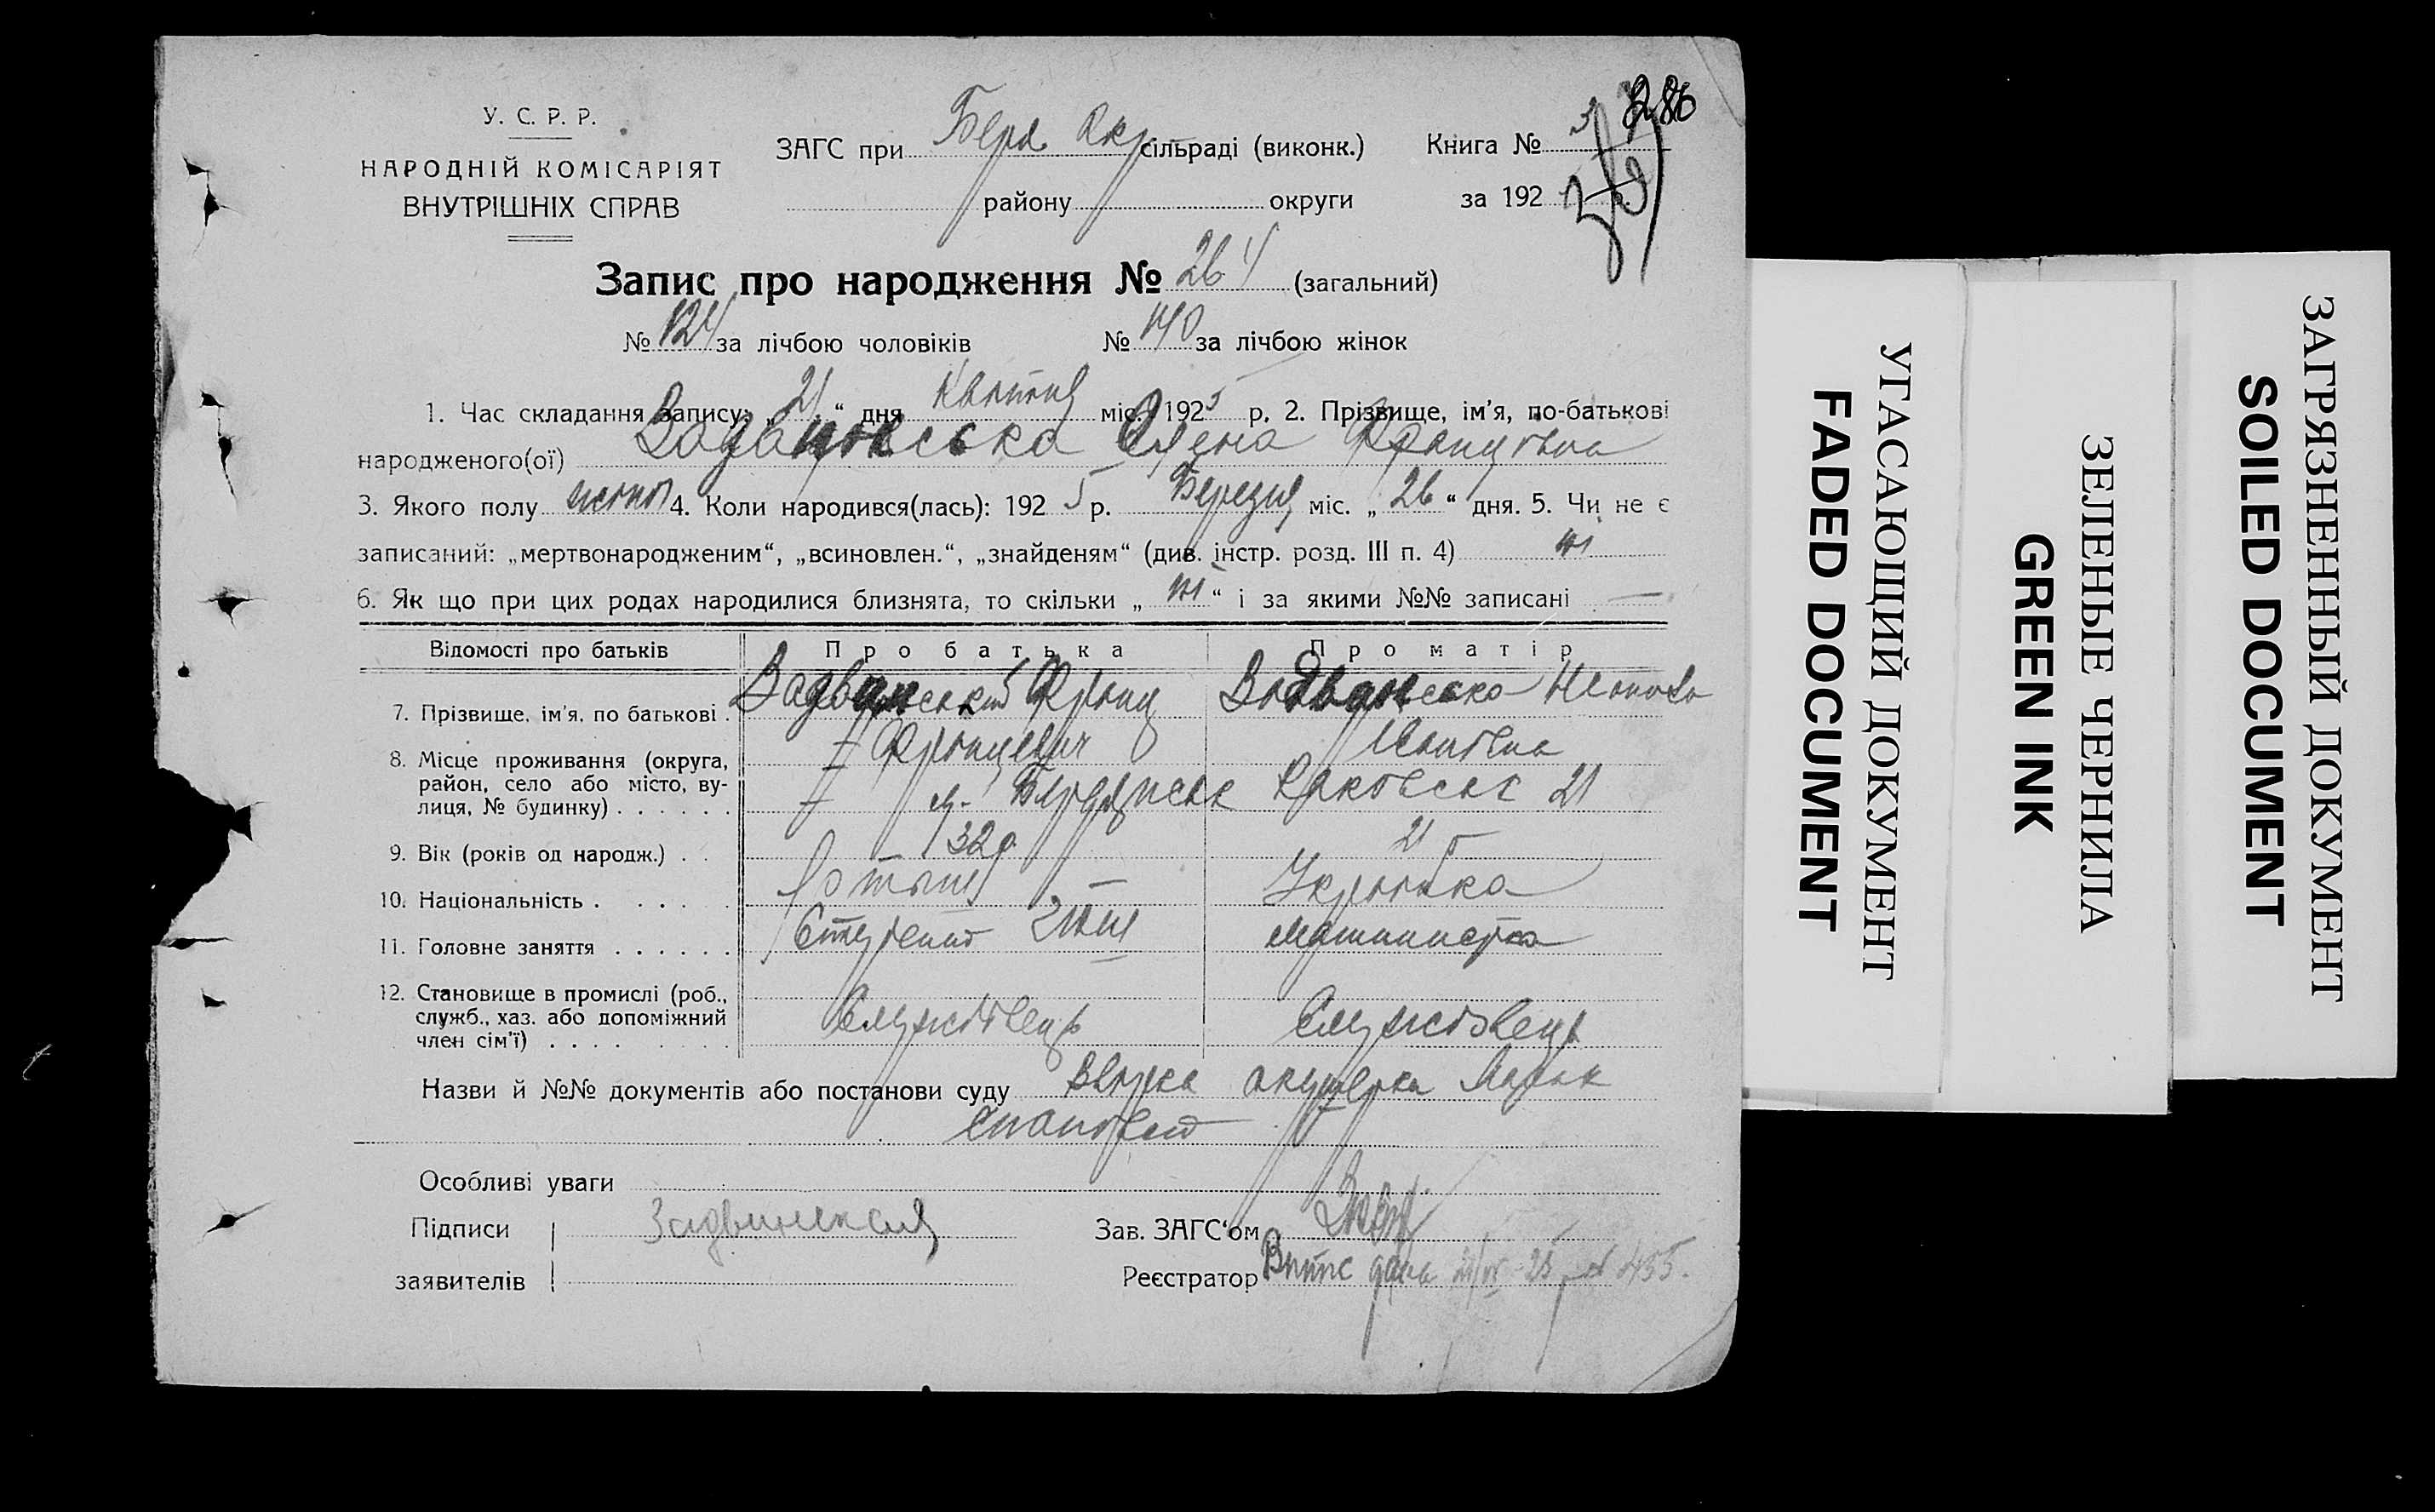 286
У. С. Р. Р.
НАРОДНІЙ КОМІСАРІЯТ
ВНУТРІШНІХ СПРАВ
ЗАГС при Берд. Окр сільраді (виконк.) Книга № 3
району округи за 192
Запис про народження № 264 (загальний)
№ 124 за лічбою чоловіків № 140 за лічбою жінок
1. Час складання запису: „ 21 “ дня Квітня міс. 1925 р. 2. Прізвище, ім'я, по-батькові
народженого(ої) Олена Францівна
3. Якого полу жіноч 4. Коли народився(лась): 192 5 р. Березня міс. „ 26 “ дня. 5. Чи не є
записаний: „мертвонародженим“, „всиновлен.“, „знайденям“ (див. інстр. розд. III п. 4) ні
6. Як що при цих родах народилися близнята, то скільки „ ні “ і за якими №№ записані —
Відомості про батьків Про батька Про матір
7. Прізвище, ім'я, по батькові . Задвинський Франц
Францевич Іванівна
8. Місце проживання (округа,
район, село або місто, ву-
лиця, № будинку) . . . . . . м. Бердянськ 21
9. Вік (років од народж.) . . 32 р. 21 р
10. Національність . . . . . Латиш Українка
11. Головне заняття . . . . . . Студент Машинистка
12. Становище в промислі (роб.,
служб., хаз. або допоміжний
член сім'ї) . . . . Службовець Службовець
Назви й №№ документів або постанови суду акушерки
Особливі уваги
Підписи Задвинская Зав. ЗАГС‘ом
заявителів Реєстратор Витяг дана 455.
УГАСАЮЩИЙ ДОКУМЕНТ
FADED DOCUMENT
ЗЕЛЕНЫЕ ЧЕРНИЛА
GREEN INK
ЗАГРЯЗНЕННЫЙ ДОКУМЕНТ
SOILED DOCUMENT